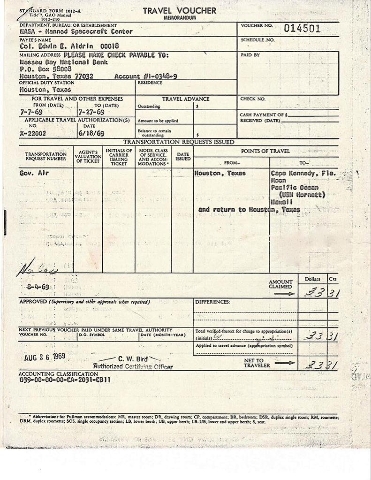 STANDARD FORM 1012-A
TRAVEL VOUCHER
MEMORANDUM
DEPARTMENT, BUREAU OR ESTABLISHMENT
NASA - Manned Spacecraft Center
VOUCHER NO. 014501
PAYEE'S NAME
Col. Edwin E. Aldrin 00018
SCHEDULE NO.
MAILING ADDRESS PLEASE MAKE CHECK PAYABLE TO:
Nassau Bay National Bank
P.O. Box 58008
Houston, Texas 77032 Account #1-0348-9
PAID BY
OFFICIAL DUTY STATION
Houston, Texas
RESIDENCE
FOR TRAVEL AND OTHER EXPENSES
FROM (DATE) TO (DATE)
7-7-69 7-27-69
TRAVEL ADVANCE
Outstanding $
CHECK NO.
APPLICABLE TRAVEL AUTHORIZATION(S)
NO. DATE
X-22002 6/18/69
Amount to be applied
Balance to remain outstanding $
CASH PAYMENT OF $
RECEIVED (DATE)
TRANSPORTATION REQUESTS ISSUED
TRANSPORTATION REQUEST NUMBER
AGENT'S VALUATION OF TICKET
INITIALS OF CARRIER ISSUING TICKET
MODE, CLASS OF SERVICE, AND ACCOMMODATIONS *
DATE ISSUED
POINTS OF TRAVEL
FROM— TO—
Gov. Air
Houston, Texas Cape Kennedy, Fla.
Moon
Pacific Ocean
(USN Hornet)
Hawaii
and return to Houston, Texas
8-4-69
AMOUNT CLAIMED
Dollars Cts
33 31
APPROVED (Supervisory and other approvals when required)
DIFFERENCES:
NEXT PREVIOUS VOUCHER PAID UNDER SAME TRAVEL AUTHORITY
VOUCHER NO. D.O. SYMBOL DATE (MONTH-YEAR)
Total verified correct for charge to appropriation(s)
(initials)
33 31
Applied to travel advance (appropriation symbol)
AUG 26 1969
C. W. Bird
Authorized Certifying Officer
NET TO TRAVELER
33 31
ACCOUNTING CLASSIFICATION
039-00-00-00-CA-2031-CB11
* Abbreviations for Pullman accommodations: MR, master room; DR, drawing room; CP, compartment; BR, bedroom; DSR, duplex single room; RM, roomette;
DRM, duplex roomette; SOS, single occupancy section; LB, lower berth; UB, upper berth; LB-UB, lower and upper berth; S, seat.